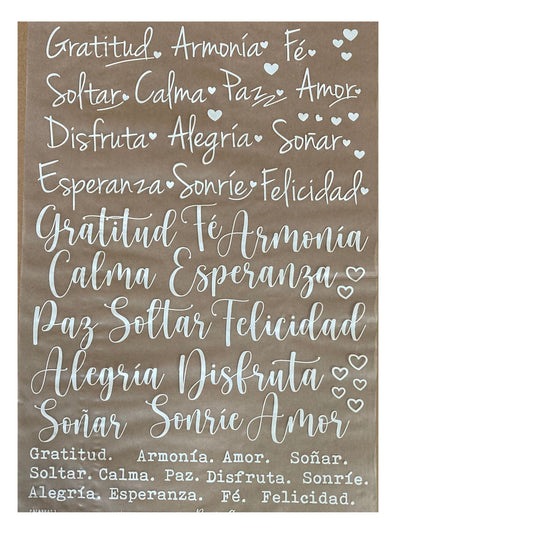 Gratitud. Armonía Fé.
Soltar. Calma Paz Amor.
Disfruta Alegría Soñar.
Esperanza Sonríe Felicidad
Gratitud Fé Armonía
Calma Esperanza
Paz Soltar Felicidad
Alegría Disfruta
Soñar Sonríe Amor
Gratitud. Armonía. Amor. Soñar.
Soltar. Calma. Paz. Disfruta. Sonríe.
Alegría. Esperanza. Fé. Felicidad.